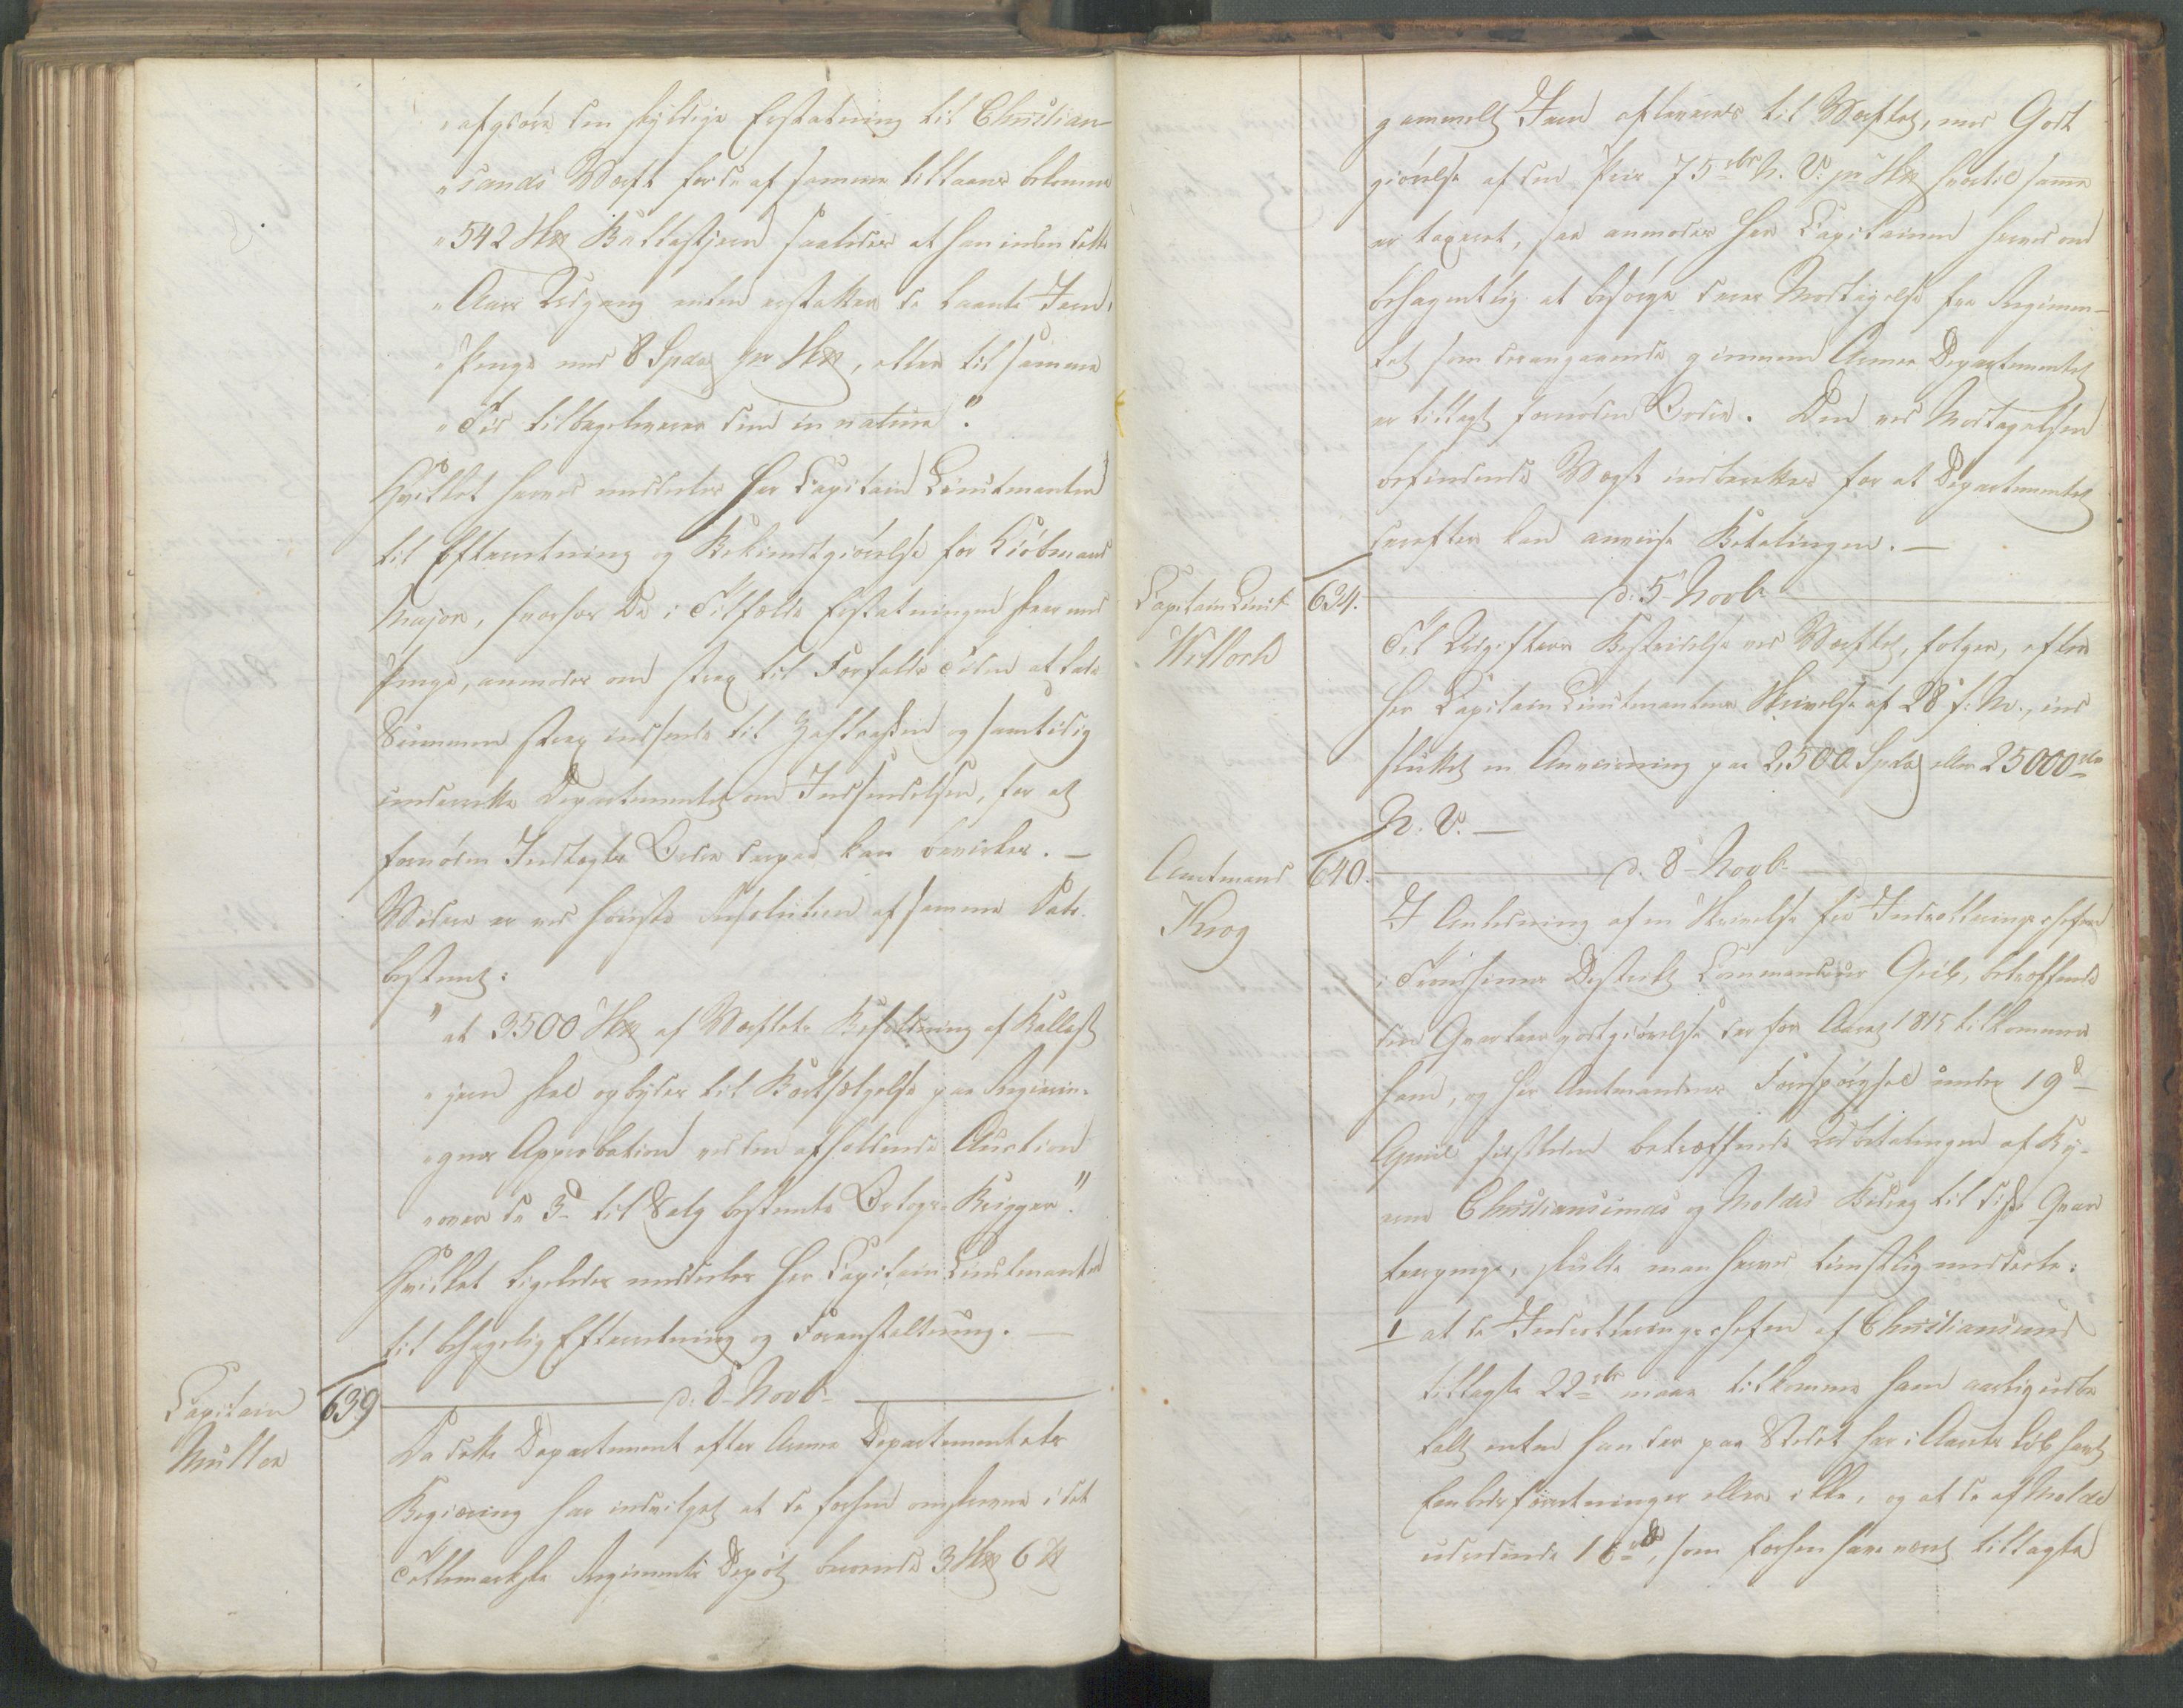 "afgiøre den skyldige Erstatning til Christian-
"sands Værft for de af samme tillaans bekomne
"542 Sk℔ Ballastjern saaledes at han inden dette
"Aars Udgang enten erstatter de laante Jern,
"Penge med 8 Spd. pr Sk℔, eller til samme
"Tid tilbageleverer dem in natura".
Hvilket herved meddeles Hr Capitain Lieutnanten
til Efterretning og Bekiendtgiørelse for Kiøbmand
Major, hvorhos De i Tilfælde Erstatningen skeer med
Penge, anmodes om strax til Forfalds Tiden at lade
Summen strax indsende til Zahlkassen og samtidig
underrette Departementet om Indsendelsen, for at
fornøden Indtægts Ordre derpaa kan bevirkes. —
Videre er ved høieste Resolution af samme Dato
bestemt:
"at 3500 Sk℔ af Værftets Beholdning af Ballast
"jern skal opbydes til Bortsælgelse paa Regierin-
"gens Approbation ved den afholdende Auction
"over de 3de til Salg bestemte Orlogs-Brigger".
Hvilket ligeledes meddeles Hr Capitain Lieutnanten
til behagelig Efterretning og Foranstaltning. —
Capitain
Müller
639
d. 5 Novbr
Da dette Departement efter Armee Departementets
Begiæring har indvilget at de forhen omskrevne i det
Tellemarkske Regiments Depôt beroende 3 Sk℔ 6 ℔
gammelt Jern afleveres til Værftet, mod Godt
giørelse af den Priis 75 rbd N. V. pr Sk℔ hvortil samme
er taxeret, saa anmodes Herr Capitainen herved om
behagentlig at besørge deres Modtagelse fra Regimen-
tet som derangaaende giennem Armee Departementet
er tillagt fornøden Ordre. Den ved Modtagelsen
befindende Vægt indberettes for at Departementet
derefter kan anviise Betalingen. —
Capitain Lieut.
Willoch
634.
d. 5 Novbr
Til Udgifters Bestridelse ved Værftet, følger, efter
Hr Capitain Lieutnantens Skrivelse af 28 f. M., ind
sluttet en Anviisning paa 2,500 Spd. eller 25000 rbd
N. V. —
Amtmand
Krog
640.
d. 8 Novbr
I Anledning af en Skrivelse fra Indrolleringschefen
i Trondhiems District Commandeur Grib, betreffende
den Qvarteer godtgiørelse der for Aaret 1815 tilkommer
ham, og Hr Amtmandens Forespørgsel under 19de
April sidstleden betræffende Udbetalingen af By-
erne Christiansunds og Moldes Bidrag til disse Qvar
teerpenge, skulde man herved tienstligst meddele:
1 at de Indrolleringschefen af Christiansund
tillagte 22 rbd maae tilkomme ham aarlig udbe
talt enten han der paa Stedet har i Aarets Løb havt
Embedsforretninger eller ikke, og at de af Molde
udredende 16 rbd, som forhen have været tillagte